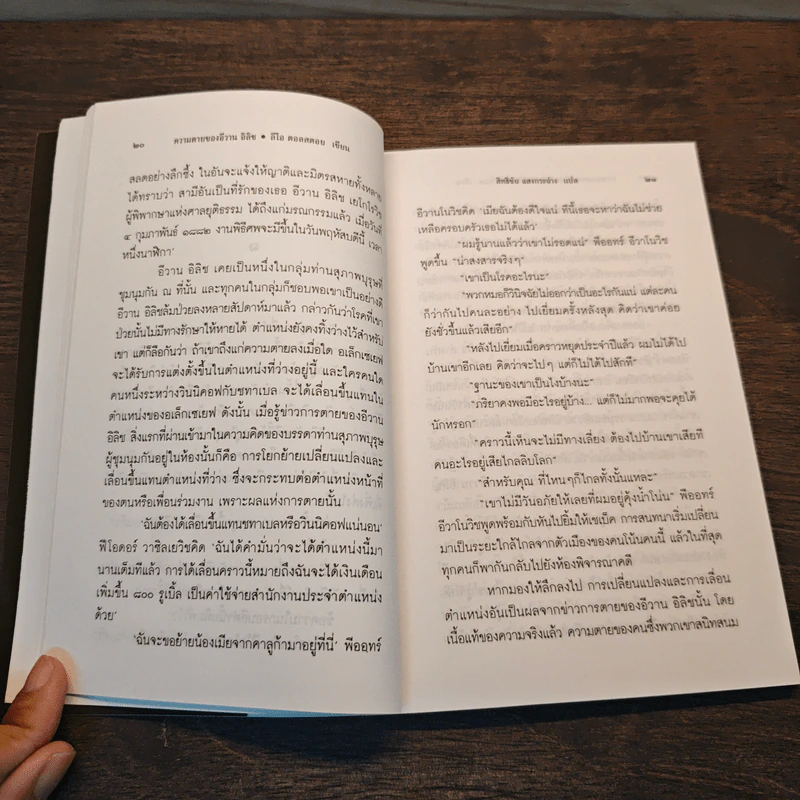 ๒๐ ความตายของอีวาน อิลิช • ลีโอ ตอลสตอย เขียน
สลดอย่างลึกซึ้ง ในอันจะแจ้งให้ญาติและมิตรสหายทั้งหลาย
ได้ทราบว่า สามีอันเป็นที่รักของเธอ อีวาน อิลิช เยโกโรวิช
ผู้พิพากษาแห่งศาลยุติธรรม ได้ถึงแก่มรณกรรมแล้ว เมื่อวันที่
๔ กุมภาพันธ์ ๑๘๘๒ งานพิธีศพจะมีขึ้นในวันพฤหัสบดีนี้ เวลา
หนึ่งนาฬิกา'
อีวาน อิลิช เคยเป็นหนึ่งในกลุ่มท่านสุภาพบุรุษที่
ชุมนุมกัน ณ ที่นั้น และทุกคนในกลุ่มก็ชอบพอเขาเป็นอย่างดี
อีวาน อิลิชล้มป่วยลงหลายสัปดาห์มาแล้ว กล่าวกันว่าโรคที่เขา
ป่วยนั้นไม่มีทางรักษาให้หายได้ ตำแหน่งยังคงทิ้งว่างไว้สำหรับ
เขา แต่ก็ลือกันว่า ถ้าเขาถึงแก่ความตายลงเมื่อใด อเล็กเซเยฟ
จะได้รับการแต่งตั้งขึ้นในตำแหน่งที่ว่างอยู่นี้ และใครคนใด
คนหนึ่งระหว่างวินนิคอฟกับชทาเบล จะได้เลื่อนขึ้นแทนใน
ตำแหน่งของอเล็กเซเยฟ ดังนั้น เมื่อรู้ข่าวการตายของอีวาน
อิลิช สิ่งแรกที่ผ่านเข้ามาในความคิดของบรรดาท่านสุภาพบุรุษ
ผู้ชุมนุมกันอยู่ในห้องนั้นก็คือ การโยกย้ายเปลี่ยนแปลงและ
เลื่อนขึ้นแทนตำแหน่งที่ว่าง ซึ่งจะกระทบต่อตำแหน่งหน้าที่
ของตนหรือเพื่อนร่วมงาน เพราะผลแห่งการตายนั้น
'ฉันต้องได้เลื่อนขึ้นแทนชทาเบลหรือวินนิคอฟแน่นอน'
ฟีโอดอร์ วาซิลเยวิชคิด 'ฉันได้คำมั่นว่าจะได้ตำแหน่งนี้มา
นานเต็มทีแล้ว การได้เลื่อนคราวนี้หมายถึงฉันจะได้เงินเดือน
เพิ่มขึ้น ๘๐๐ รูเบิ้ล เป็นค่าใช้จ่ายสำนักงานประจำตำแหน่ง
ด้วย'
'ฉันจะขอย้ายน้องเมียจากคาลูก้ามาอยู่ที่นี่' พีออทร์
สิทธิชัย แสงกระจ่าง แปล ๒๑
อีวาโนวิชคิด 'เมียฉันต้องดีใจแน่ ทีนี้เธอจะหาว่าฉันไม่ช่วย
เหลือครอบครัวเธอไม่ได้แล้ว'
"ผมรู้นานแล้วว่าเขาไม่รอดแน่" พีออทร์ อีวาโนวิช
พูดขึ้น "น่าสงสารจริงๆ"
"เขาเป็นโรคอะไรนะ"
"พวกหมอก็วินิจฉัยไม่ออกว่าเป็นอะไรกันแน่ แต่ละคน
ก็ว่ากันไปคนละอย่าง ไปเยี่ยมครั้งหลังสุด คิดว่าเขาค่อย
ยังชั่วขึ้นแล้วเสียอีก"
"หลังไปเยี่ยมเมื่อคราวหยุดประจำปีแล้ว ผมไม่ได้ไป
บ้านเขาอีกเลย คิดว่าจะไปๆ แต่ก็ไม่ได้ไปสักที"
"ฐานะของเขาเป็นไงบ้างนะ"
"ภริยาคงพอมีอะไรอยู่บ้าง... แต่ก็ไม่มากพอจะคุยได้
นักหรอก"
"คราวนี้เห็นจะไม่มีทางเลี่ยง ต้องไปบ้านเขาเสียที
คนอะไรอยู่เสียไกลลิบโลก"
"สำหรับคุณ ที่ไหนๆก็ไกลทั้งนั้นแหละ"
"เขาไม่มีวันอภัยให้เลยที่ผมอยู่คุ้งน้ำโน่น" พีออทร์
อีวาโนวิชพูดพร้อมกับหันไปยิ้มให้เชเบ็ค การสนทนาเริ่มเปลี่ยน
มาเป็นระยะใกล้ไกลจากตัวเมืองของคนโน้นคนนี้ แล้วในที่สุด
ทุกคนก็พากันกลับไปยังห้องพิจารณาคดี
หากมองให้ลึกลงไป การเปลี่ยนแปลงและการเลื่อน
ตำแหน่งอันเป็นผลจากข่าวการตายของอีวาน อิลิชนั้น โดย
เนื้อแท้ของความจริงแล้ว ความตายของคนซึ่งพวกเขาสนิทสนม